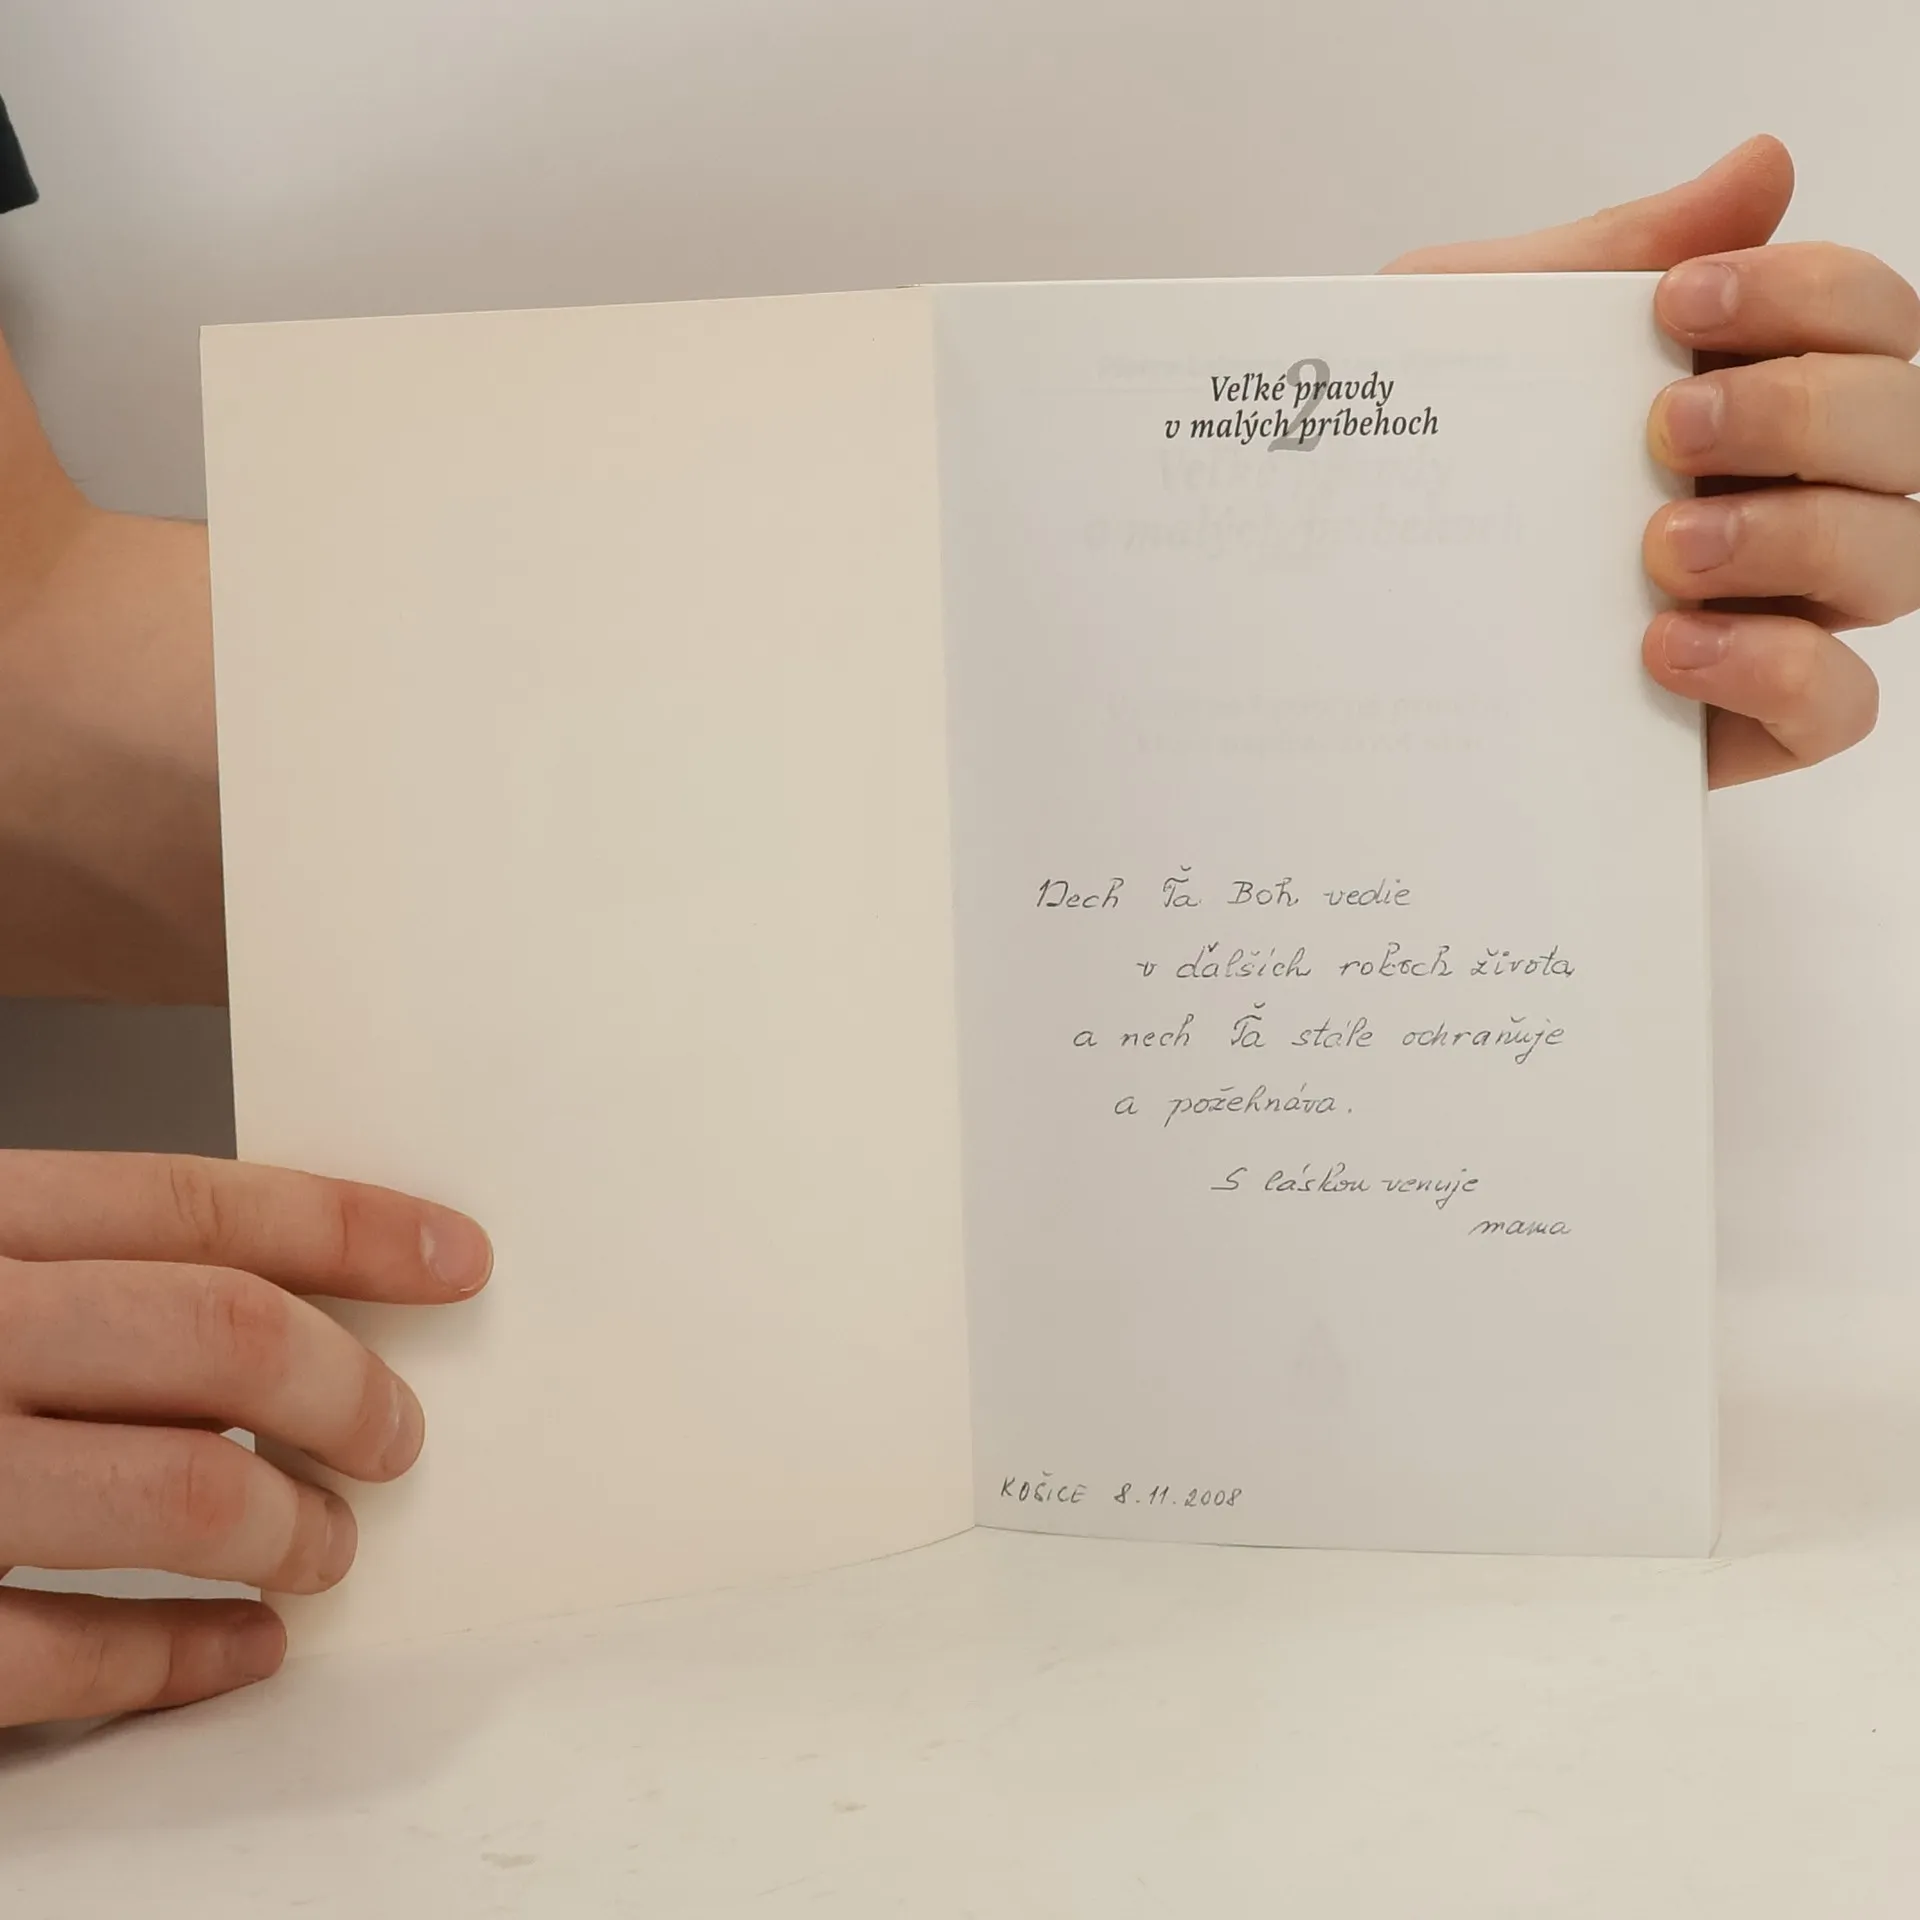 2
Veľké pravdy
v malých príbehoch
Nech Ťa Boh vedie
v ďalších rokoch života
a nech Ťa stále ochraňuje
a požehnáva.
S láskou venuje
mama
KOŠICE 8.11.2008